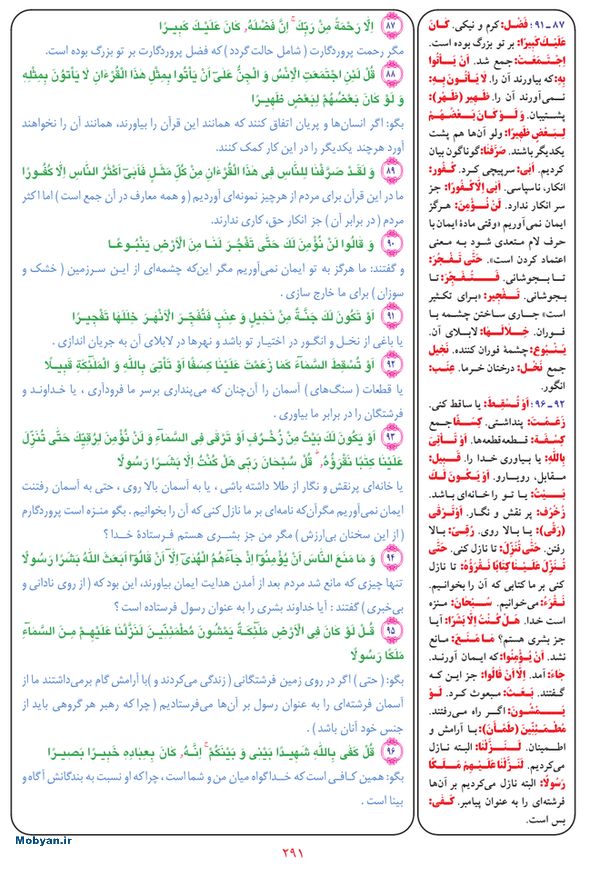 ۸۷ اِلّا رَحْمَةً مِنْ رَبِّكَ ۚ اِنَّ فَضْلَهُ كَانَ عَلَيْكَ كَبيرًا
مگر رحمت پروردگارت ( شامل حالت گردد ) که فضل پروردگارت بر تو بزرگ بوده است.
۸۸ قُلْ لَئِنِ اجْتَمَعَتِ الْاِنْسُ وَ الْجِنُّ عَلىٰٓ اَنْ يَأْتُوا بِمِثْلِ هٰذَا الْقُرْءَانِ لا يَأْتونَ بِمِثْلِهِ
وَ لَوْ كَانَ بَعْضُهُمْ لِبَعْضٍ ظَهيرًا
بگو: اگر انسان‌ها و پریان اتفاق کنند که همانند این قرآن را بیاورند، همانند آن را نخواهند
آورد هرچند یکدیگر را در این کار کمک کنند.
۸۹ وَ لَقَدْ صَرَّفْنا لِلنّاسِ في هٰذَا الْقُرْءَانِ مِنْ كُلِّ مَثَلٍ فَاَبىٰٓ اَكْثَرُ النّاسِ اِلّا كُفُورًا
ما در این قرآن برای مردم از هرچیز نمونه‌ای آوردیم ( و همه معارف در آن جمع است ) اما اکثر
مردم ( در برابر آن ) جز انکار حق، کاری ندارند.
۹۰ وَ قَالُوا لَنْ نُؤْمِنَ لَكَ حَتّىٰ تَفْجُرَ لَنا مِنَ الْاَرْضِ يَنْبُوعًا
و گفتند: ما هرگز به تو ایمان نمی‌آوریم مگر این‌که چشمه‌ای از این سرزمین ( خشک و
سوزان ) برای ما خارج سازی .
۹۱ اَوْ تَكُونَ لَكَ جَنَّةٌ مِنْ نَخيلٍ وَ عِنَبٍ فَتُفَجِّرَ الْاَنْهٰرَ خِلٰلَها تَفْجيرًا
یا باغی از نخل و انگور در اختیار تو باشد و نهرها در لابلای آن به جریان اندازی .
۹۲ اَوْ تُسْقِطَ السَّمآءَ كَما زَعَمْتَ عَلَيْنا كِسَفًا اَوْ تَأْتِيَ بِاللّٰهِ وَ الْمَلٰٓئِكَةِ قَبيلًا
یا قطعات ( سنگ‌های ) آسمان را آن‌چنان که می‌پنداری برسر ما فرودآری ، یا خداوند و
فرشتگان را در برابر ما بیاوری .
۹۳ اَوْ يَكُونَ لَكَ بَيْتٌ مِنْ زُخْرُفٍ اَوْ تَرْقىٰ فِي السَّمآءِ وَ لَنْ نُؤْمِنَ لِرُقِيِّكَ حَتّىٰ تُنَزِّلَ
عَلَيْنا كِتٰبًا نَقْرَؤُهُ ۗ قُلْ سُبْحَانَ رَبّي هَلْ كُنْتُ اِلّا بَشَرًا رَسُولًا
یا خانه‌ای پرنقش و نگار از طلا داشته باشی ، یا به آسمان بالا روی ، حتی به آسمان رفتنت
ایمان نمی‌آوریم مگرآن‌که نامه‌ای بر ما نازل کنی که آن را بخوانیم . بگو منزه است پروردگارم
( از این سخنان بی‌ارزش ) مگر من جز بشری هستم فرستادهٔ خدا ؟
۹۴ وَ ما مَنَعَ النّاسَ اَنْ يُؤْمِنُوٓا اِذْ جآءَهُمُ الْهُدىٰٓ اِلّآ اَنْ قالُوٓا اَبَعَثَ اللّٰهُ بَشَرًا رَسُولًا
تنها چیزی که مانع شد مردم بعد از آمدن هدایت ایمان بیاورند، این بود که ( از روی نادانی و
بی‌خبری ) گفتند : آیا خداوند بشری را به عنوان رسول فرستاده است ؟
۹۵ قُلْ لَوْ كَانَ فِي الْاَرْضِ مَلٰٓئِكَةٌ يَمْشُونَ مُطْمَئِنّينَ لَنَزَّلْنا عَلَيْهِمْ مِنَ السَّمآءِ
مَلَكًا رَسُولًا
بگو: ( حتی ) اگر در روی زمین فرشتگانی ( زندگی می‌کردند و )با آرامش گام برمی‌داشتند ما از
آسمان فرشته‌ای را به عنوان رسول بر آن‌ها می‌فرستادیم ( چرا که رهبر هر گروهی باید از
جنس خود آنان باشد ) .
۹۶ قُلْ كَفىٰ بِاللّٰهِ شَهيدًا بَيْني وَ بَيْنَكُمْ ۚ اِنَّهُ كَانَ بِعِبادِهِ خَبيرًا بَصيرًا
بگو: همین کافی است که خدا گواه میان من و شما است ، چرا که او نسبت به بندگانش آگاه و
بینا است .
۸۷-۹۱: فَضْل: کرم و نیکی. كَانَ
عَلَيْكَ كَبيرًا: بر تو بزرگ بوده است.
اِجْتَمَعَتْ: جمع شد. اَنْ يَأْتُوا
بِهِ: که بیاورند آن را. لا يَأْتُونَ بِهِ:
نمی‌آورند آن را. ظَهير (ظَهْر):
پشتیبان. وَ لَوْ كَانَ بَعْضُهُمْ
لِبَعْضٍ ظَهيرًا: ولو آن‌ها هم پشت
یکدیگر باشند. صَرَّفْنا: گوناگون بیان
کردیم. اَبىٰ: سرپیچی کرد. كُفُور:
انکار، ناسپاسی. اَبىٰ اِلّا كُفُورًا: جز
سر انکار ندارد. لَنْ نُؤْمِنَ: هرگز
ایمان نمی‌آوریم «وقتی مادهٔ ایمان با
حرف لام متعدی شود به معنی
اعتماد کردن است». حَتّىٰ تَفْجُرَ:
تا بجوشانی. فَتُفَجِّرَ: تا
بجوشانی. تَفْجير: «برای تکثیر
است» جاری ساختن چشمه با
فوران. خِلالَها: لابلای آن.
يَنْبُوع: چشمهٔ فوران کننده. نَخيل
جمع نَخْل: درختان خرما. عِنَب:
انگور.
۹۲-۹۶: اَوْ تُسْقِطَ: یا ساقط کنی.
زَعَمْتَ: پنداشتی. كِسَفًا جمع
كِسْفَة: قطعه‌قطعه‌ها. اَوْ تَأْتِيَ
بِاللّٰهِ: یا بیاوری خدا را. قَبيل:
مقابل، رویارو. اَوْ يَكُونَ لَكَ
بَيْتٌ: یا تو را خانه‌ای باشد.
زُخْرُف: پر نقش و نگار. اَوْ تَرْقىٰ
(رَقْي): یا بالا روی. رُقِيّ: بالا
رفتن. حَتّىٰ تُنَزِّلَ: تا نازل کنی. حَتّىٰ
تُنَزِّلَ عَلَيْنا كِتابًا نَقْرَؤُهُ: تا نازل
کنی بر ما کتابی که آن را بخوانیم.
نَقْرَءُ: می‌خوانیم. سُبْحَانَ: منزه
است خدا. هَلْ كُنْتُ اِلّا بَشَرًا: آیا
جز بشری هستم؟ ما مَنَعَ: مانع
نشد. اَنْ يُؤْمِنُوا: که ایمان آورند.
جاءَ: آمد. اِلّا اَنْ قالُوا: جز این که
گفتند. بَعَثَ: مبعوث کرد. لَوْ
يَمْشُونَ: اگر راه می‌رفتند.
مُطْمَئِنّينَ (طَمْأَنَ): با آرامش و
اطمینان. لَنَزَّلْنا: البته نازل
می‌کردیم. لَنَزَّلْنا عَلَيْهِمْ مَلَكًا
رَسُولًا: البته نازل می‌کردیم بر آن‌ها
فرشته‌ای را به عنوان پیامبر. كَفىٰ:
بس است.
Mobyan.ir
۲۹۱